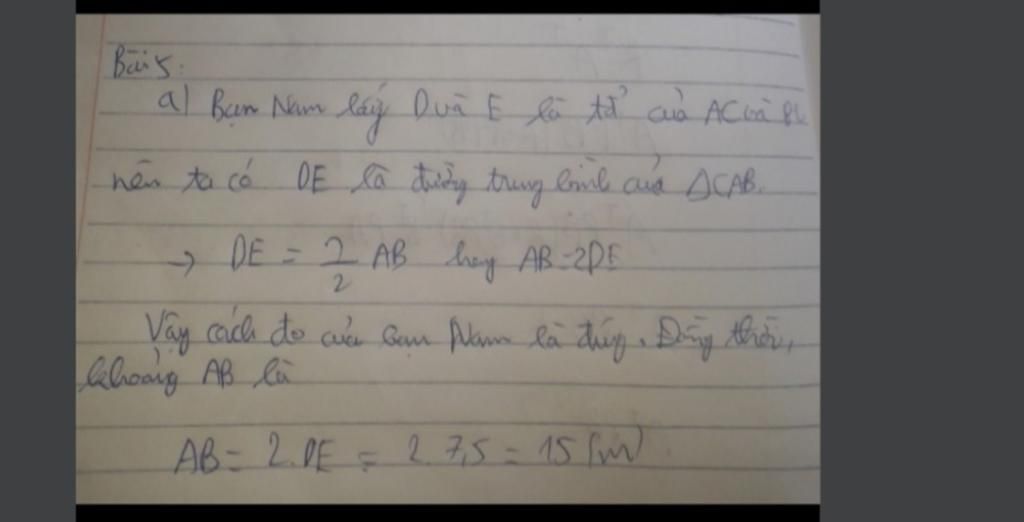 Bài 5:
a) Bạn Nam lấy D và E là tđ của AC và BC
nên ta có DE là đường trung bình của ΔCAB.
→ DE = 1/2 AB hay AB = 2DE
Vậy cách đo của bạn Nam là đúng. Đồng thời,
khoảng AB là
AB = 2.DE = 2.7,5 = 15 (m)